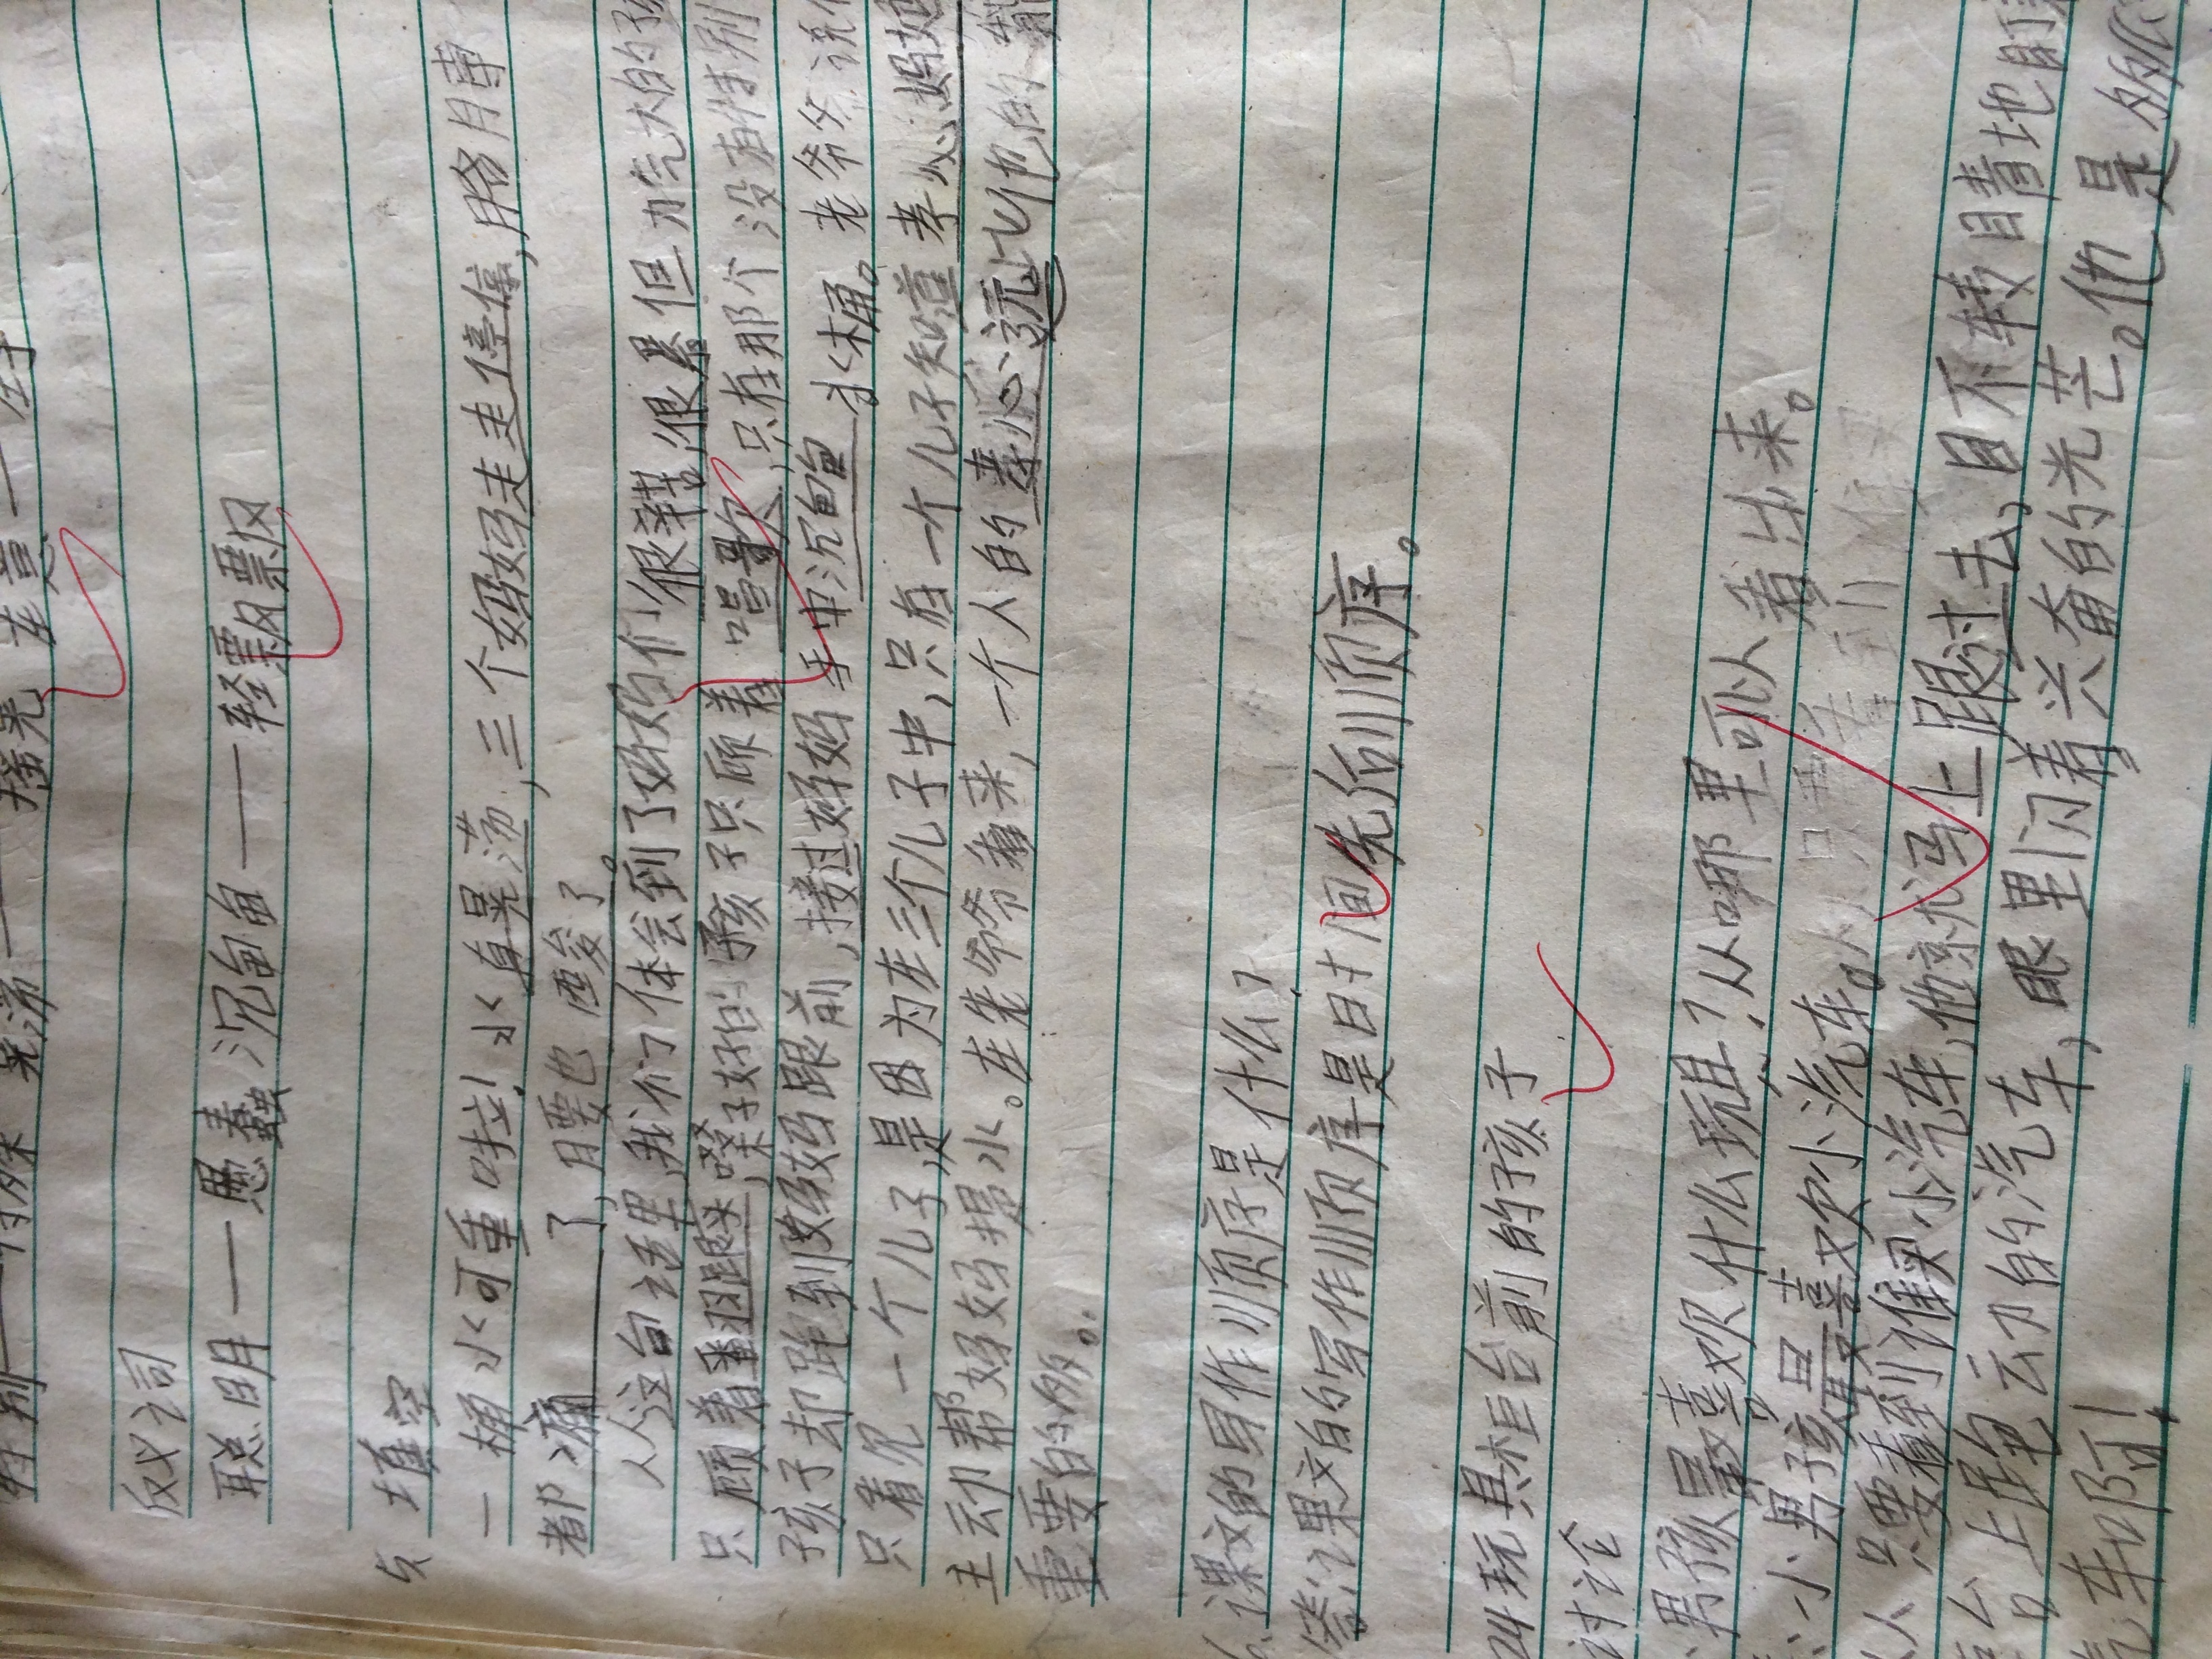 特别——特殊 晃荡——摇晃 在意——在乎
反义词
聪明——愚蠢 沉甸甸——轻飘飘
5 填空
一桶水可重啦!水直晃荡,三个妈妈走走停停,胳膊
都痛了,腰也酸了。
从这句话里,我们体会到了妈妈们很辛苦,很累但力气大的孩
只顾着翻跟头,嗓子好的孩子只顾着唱歌,只有那个没有特别
孩子却跑到妈妈跟前,接过妈妈手中沉甸甸水桶。老爷爷说他
只看见一个儿子,是因为在三个儿子中,只有一个儿子知道孝心妈妈
主动帮妈妈提水。在老爷爷看来,一个人的孝心远比他的
重要的多。
6.课文的写作顺序是什么?
答:课文的写作顺序是时间先后顺序。
24玩具柜台前的孩子
讨论
男孩最喜欢什么玩具?从哪里可以看出来。
小男孩最喜欢小汽车。
只要看到谁买小汽车,他就马上跟过去,目不转睛地盯
上跑动的汽车,眼里闪着兴奋的光芒。他是多么
汽车啊!